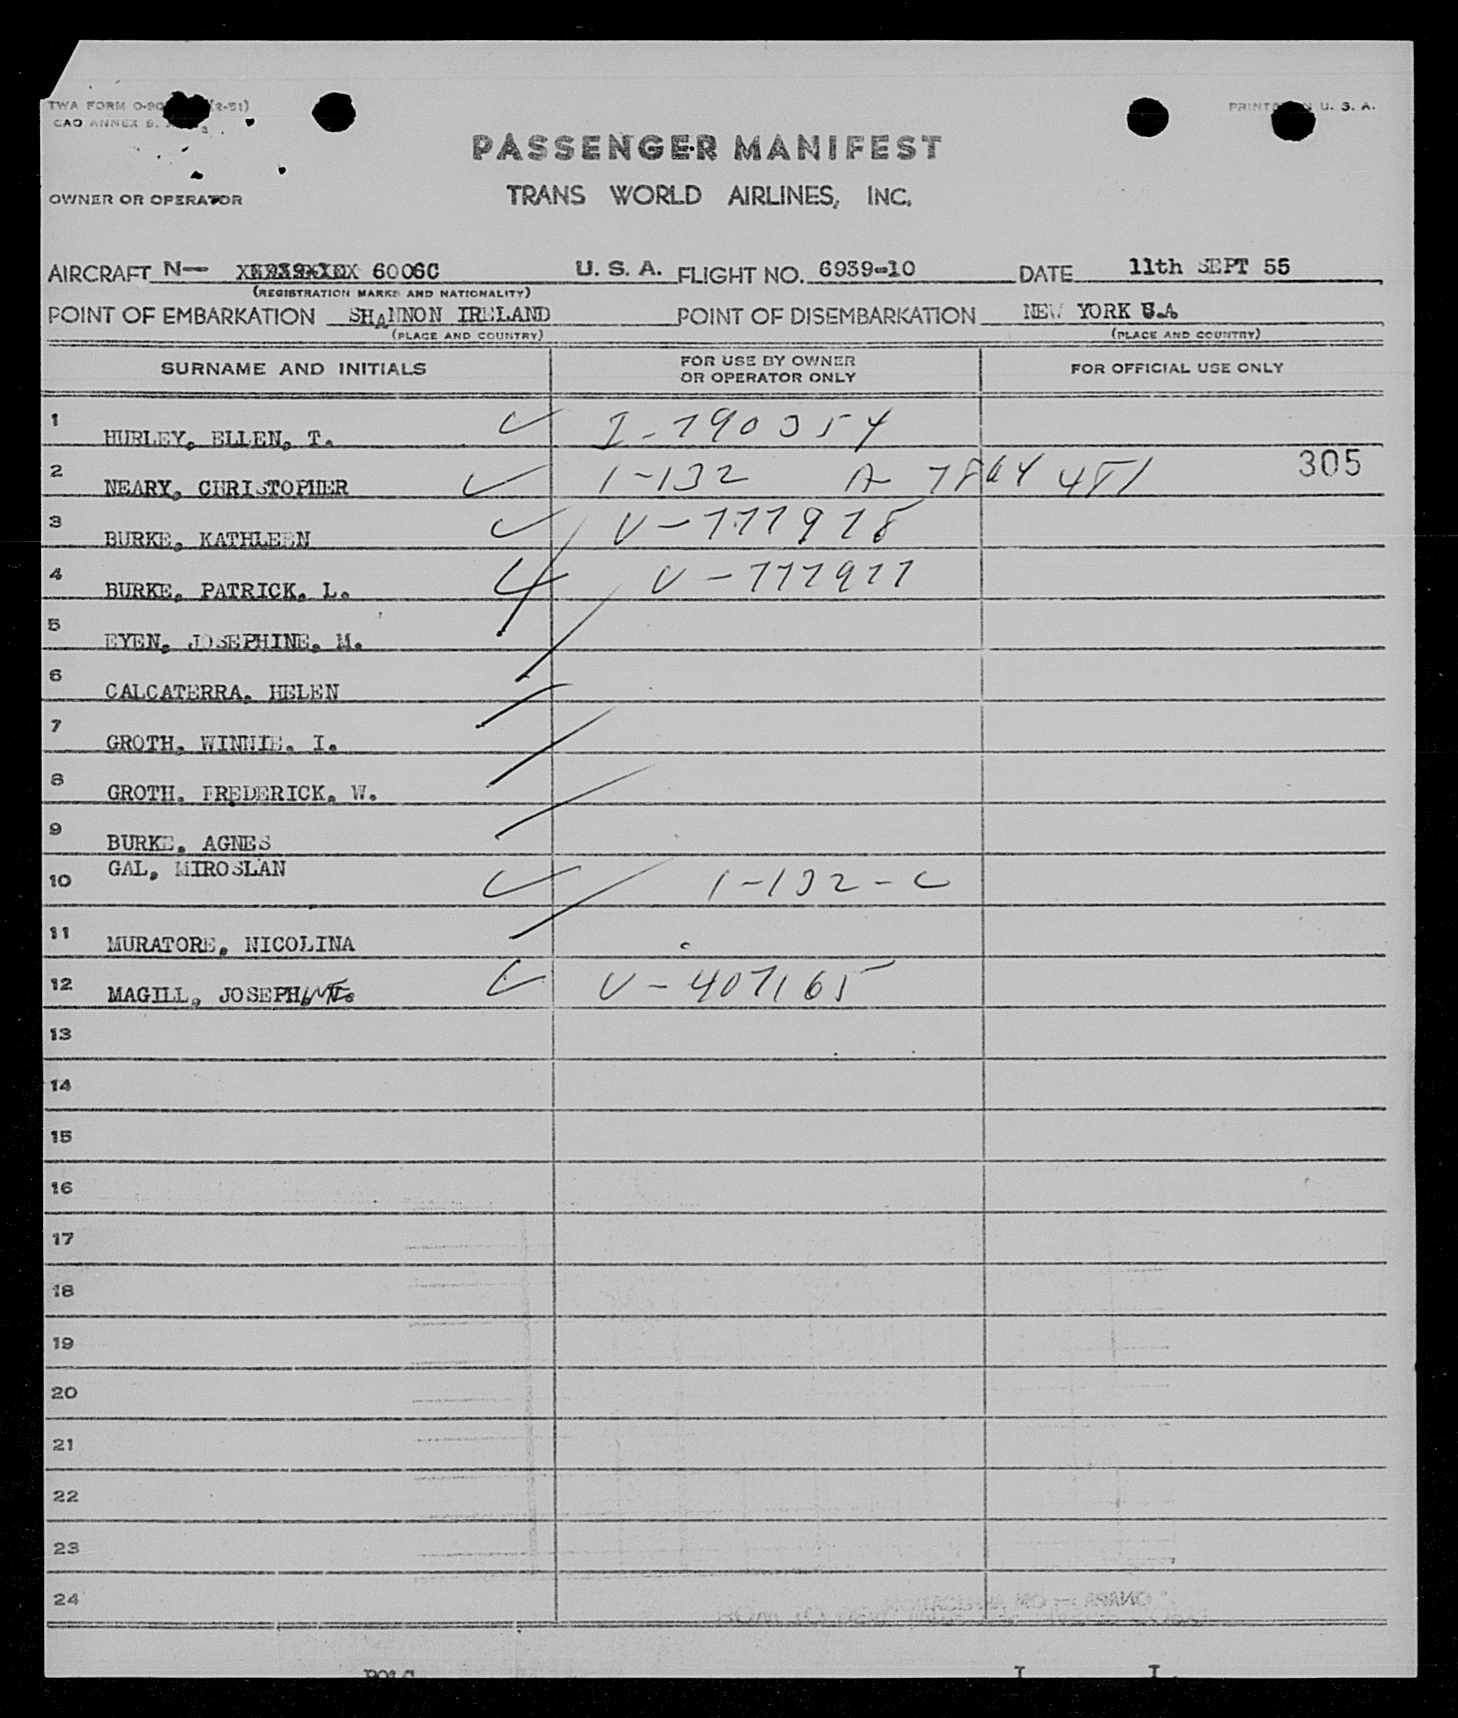 TWA FORM O-90 (2-51)
PRINTED IN U. S. A.
CAO ANNEX 9,
PASSENGER MANIFEST
OWNER OR OPERATOR
TRANS WORLD AIRLINES, INC.
AIRCRAFT N— 6006C U. S. A. FLIGHT NO. 6939-10 DATE 11th SEPT 55
(REGISTRATION MARKS AND NATIONALITY)
POINT OF EMBARKATION SHANNON IRELAND POINT OF DISEMBARKATION NEW YORK U.S.A
(PLACE AND COUNTRY) (PLACE AND COUNTRY)
SURNAME AND INITIALS FOR USE BY OWNER OR OPERATOR ONLY FOR OFFICIAL USE ONLY
1 HURLEY, ELLEN, T. I-790354
2 NEARY, CHRISTOPHER 1-132 A 7864 481 305
3 BURKE, KATHLEEN V-777978
4 BURKE, PATRICK, L. V-777977
5 EYEN, JOSEPHINE, M.
6 CALCATERRA, HELEN
7 GROTH, WINNIE, I.
8 GROTH, FREDERICK, W.
9 BURKE, AGNES
10 GAL, MIROSLAN 1-132-C
11 MURATORE, NICOLINA
12 MAGILL, JOSEPHINE V-407165
13
14
15
16
17
18
19
20
21
22
23
24